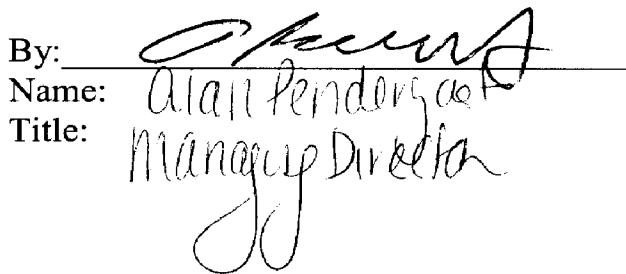 By:
Name: Alan Pendergast
Title: Managing Director